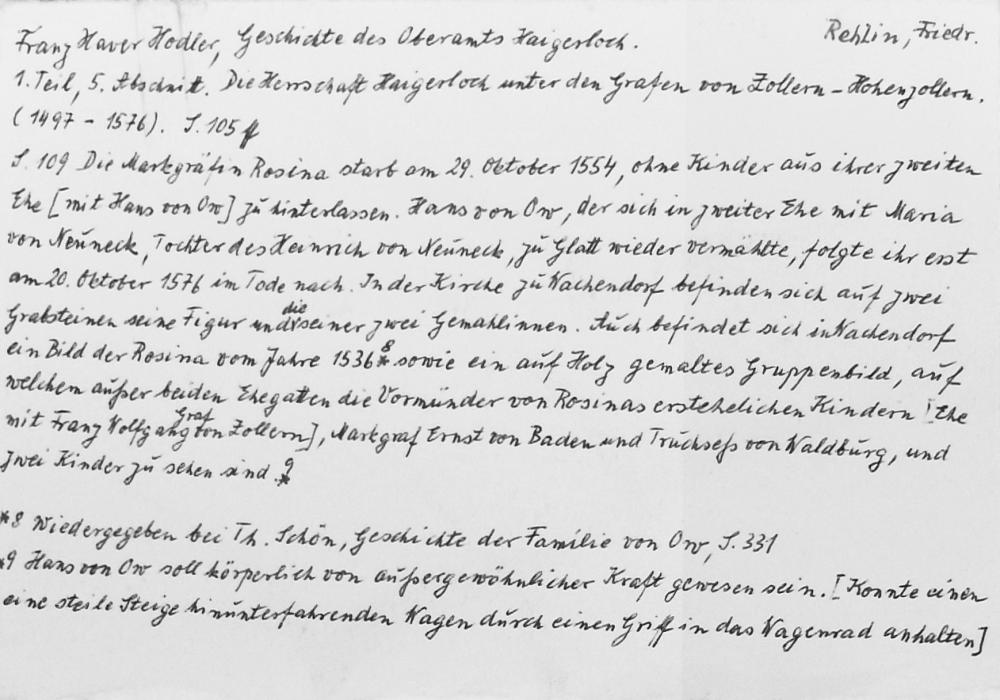 Rehlin, Friedr.
Franz Xaver Hodler, Geschichte des Oberamts Haigerloch.
1. Teil, 5. Abschnitt. Die Herrschaft Haigerloch unter den Grafen von Zollern – Hohenzollern.
(1497 – 1576). S. 105 ff
S. 109 Die Markgräfin Rosina starb am 29. Oktober 1554, ohne Kinder aus ihrer zweiten
Ehe [mit Hans von Ow] zu hinterlassen. Hans von Ow, der sich in zweiter Ehe mit Maria
von Neuneck, Tochter des Heinrich von Neuneck, zu Glatt wieder vermählte, folgte ihr erst
am 20. Oktober 1576 im Tode nach. In der Kirche zu Wachendorf befinden sich auf zwei
Grabsteinen seine Figur und die seiner zwei Gemahlinnen. Auch befindet sich in Wachendorf
ein Bild der Rosina vom Jahre 1536 *8 sowie ein auf Holz gemaltes Gruppenbild, auf
welchem außer beiden Ehegatten die Vormünder von Rosinas erstehelichen Kindern [Ehe
mit Franz Wolfgang Graf von Zollern], Markgraf Ernst von Baden und Truchseß von Waldburg, und
zwei Kinder zu sehen sind. *9
*8 Wiedergegeben bei Th. Schön, Geschichte der Familie von Ow, S. 331
*9 Hans von Ow soll körperlich von außergewöhnlicher Kraft gewesen sein. [Konnte einen
eine steile Steige hinunterfahrenden Wagen durch einen Griff in das Wagenrad anhalten]